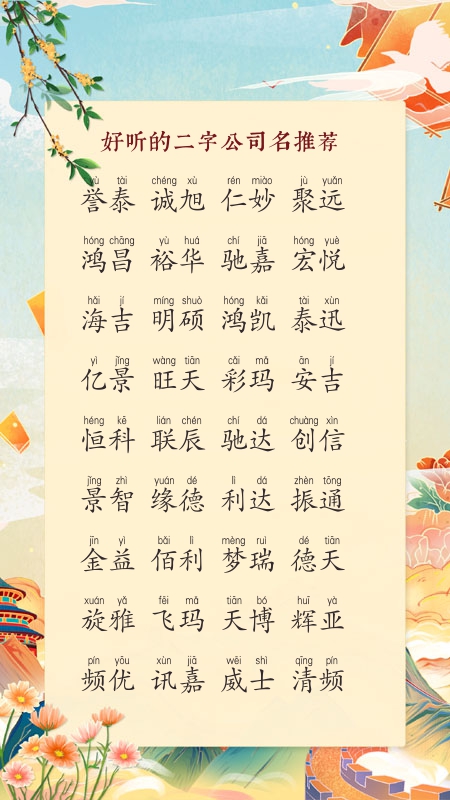 好听的二字公司名推荐
yù tài chéng xù rén miào jù yuǎn
誉泰 诚旭 仁妙 聚远
hóng chāng yù huá chí jiā hóng yuè
鸿昌 裕华 驰嘉 宏悦
hǎi jí míng shuò hóng kǎi tài xùn
海吉 明硕 鸿凯 泰迅
yì jǐng wàng tiān cǎi mǎ ān jí
亿景 旺天 彩玛 安吉
héng kē lián chén chí dá chuàng xìn
恒科 联辰 驰达 创信
jǐng zhì yuán dé lì dá zhèn tōng
景智 缘德 利达 振通
jīn yì bǎi lì mèng ruì dé tiān
金益 佰利 梦瑞 德天
xuán yǎ fēi mǎ tiān bó huī yà
旋雅 飞玛 天博 辉亚
pín yōu xùn jiā wēi shì qīng pín
频优 讯嘉 威士 清频